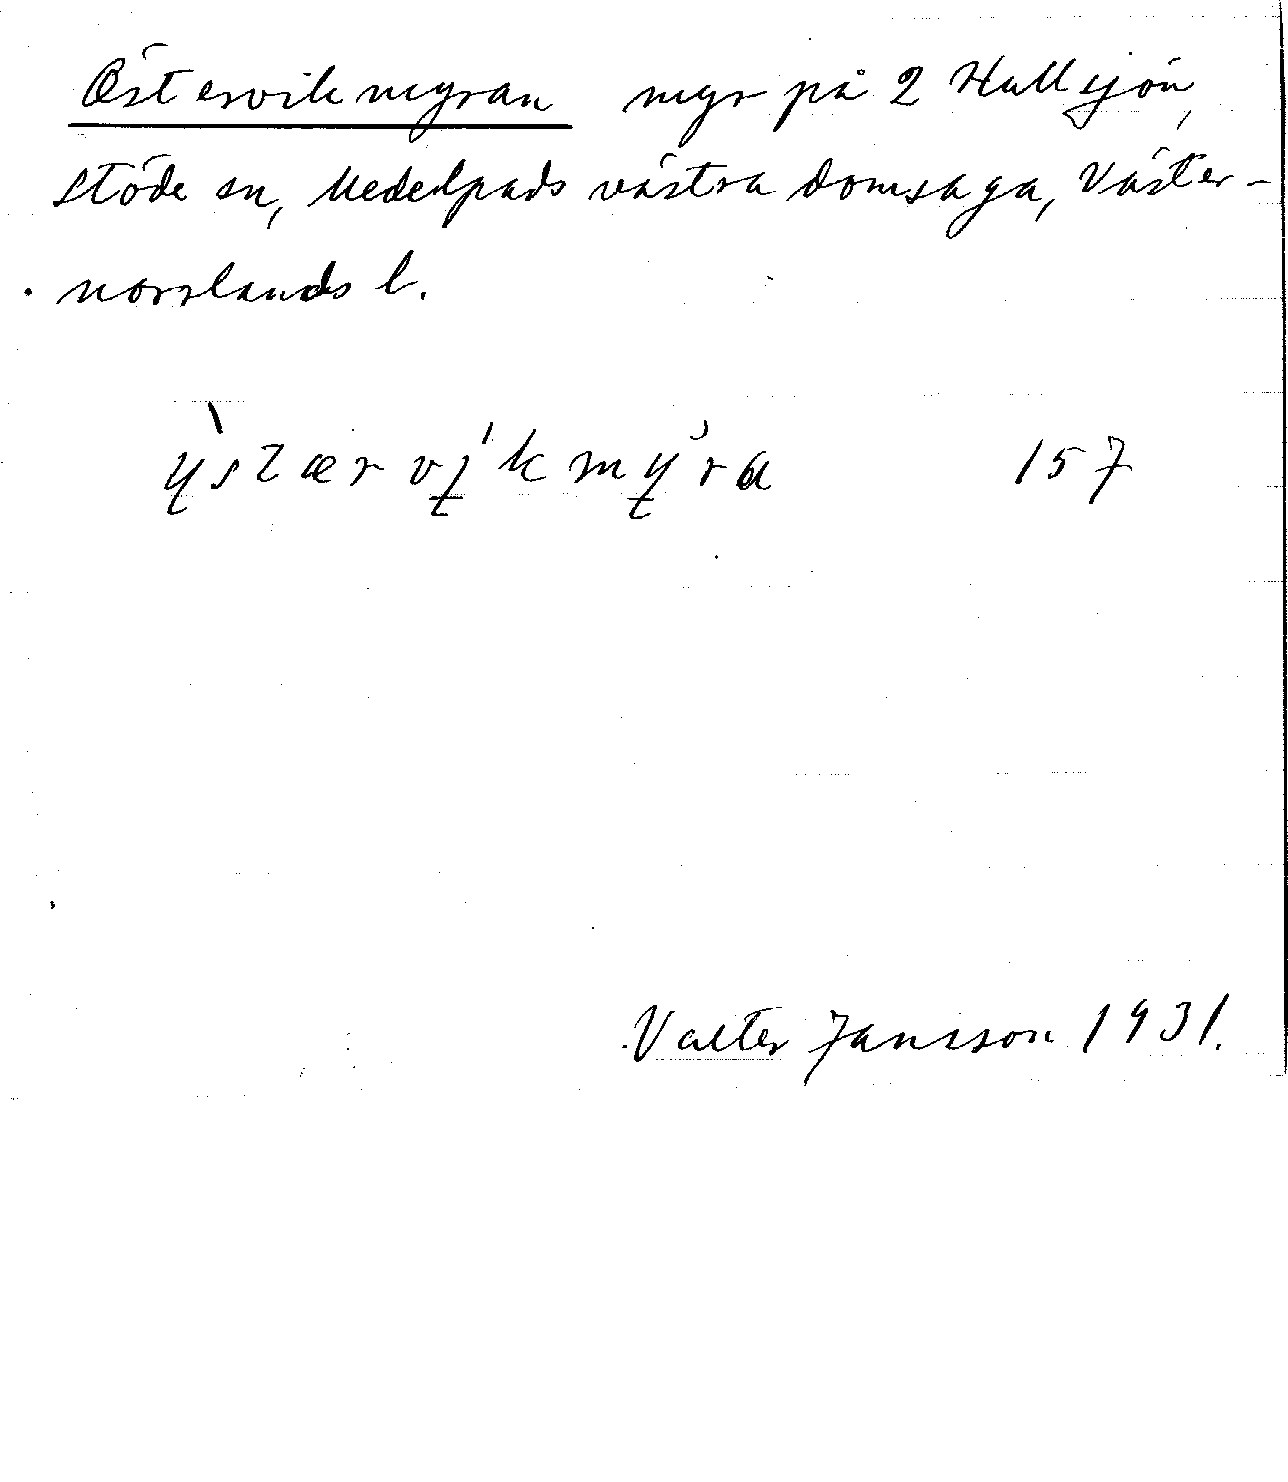 Östervikmyran myr på 2 Hullsjön,
Stöde sn, Medelpads västra domsaga, Väster-
norrlands l.
ỳstærvi̱'kmy̱'ra 157
Valter Jansson 1931.